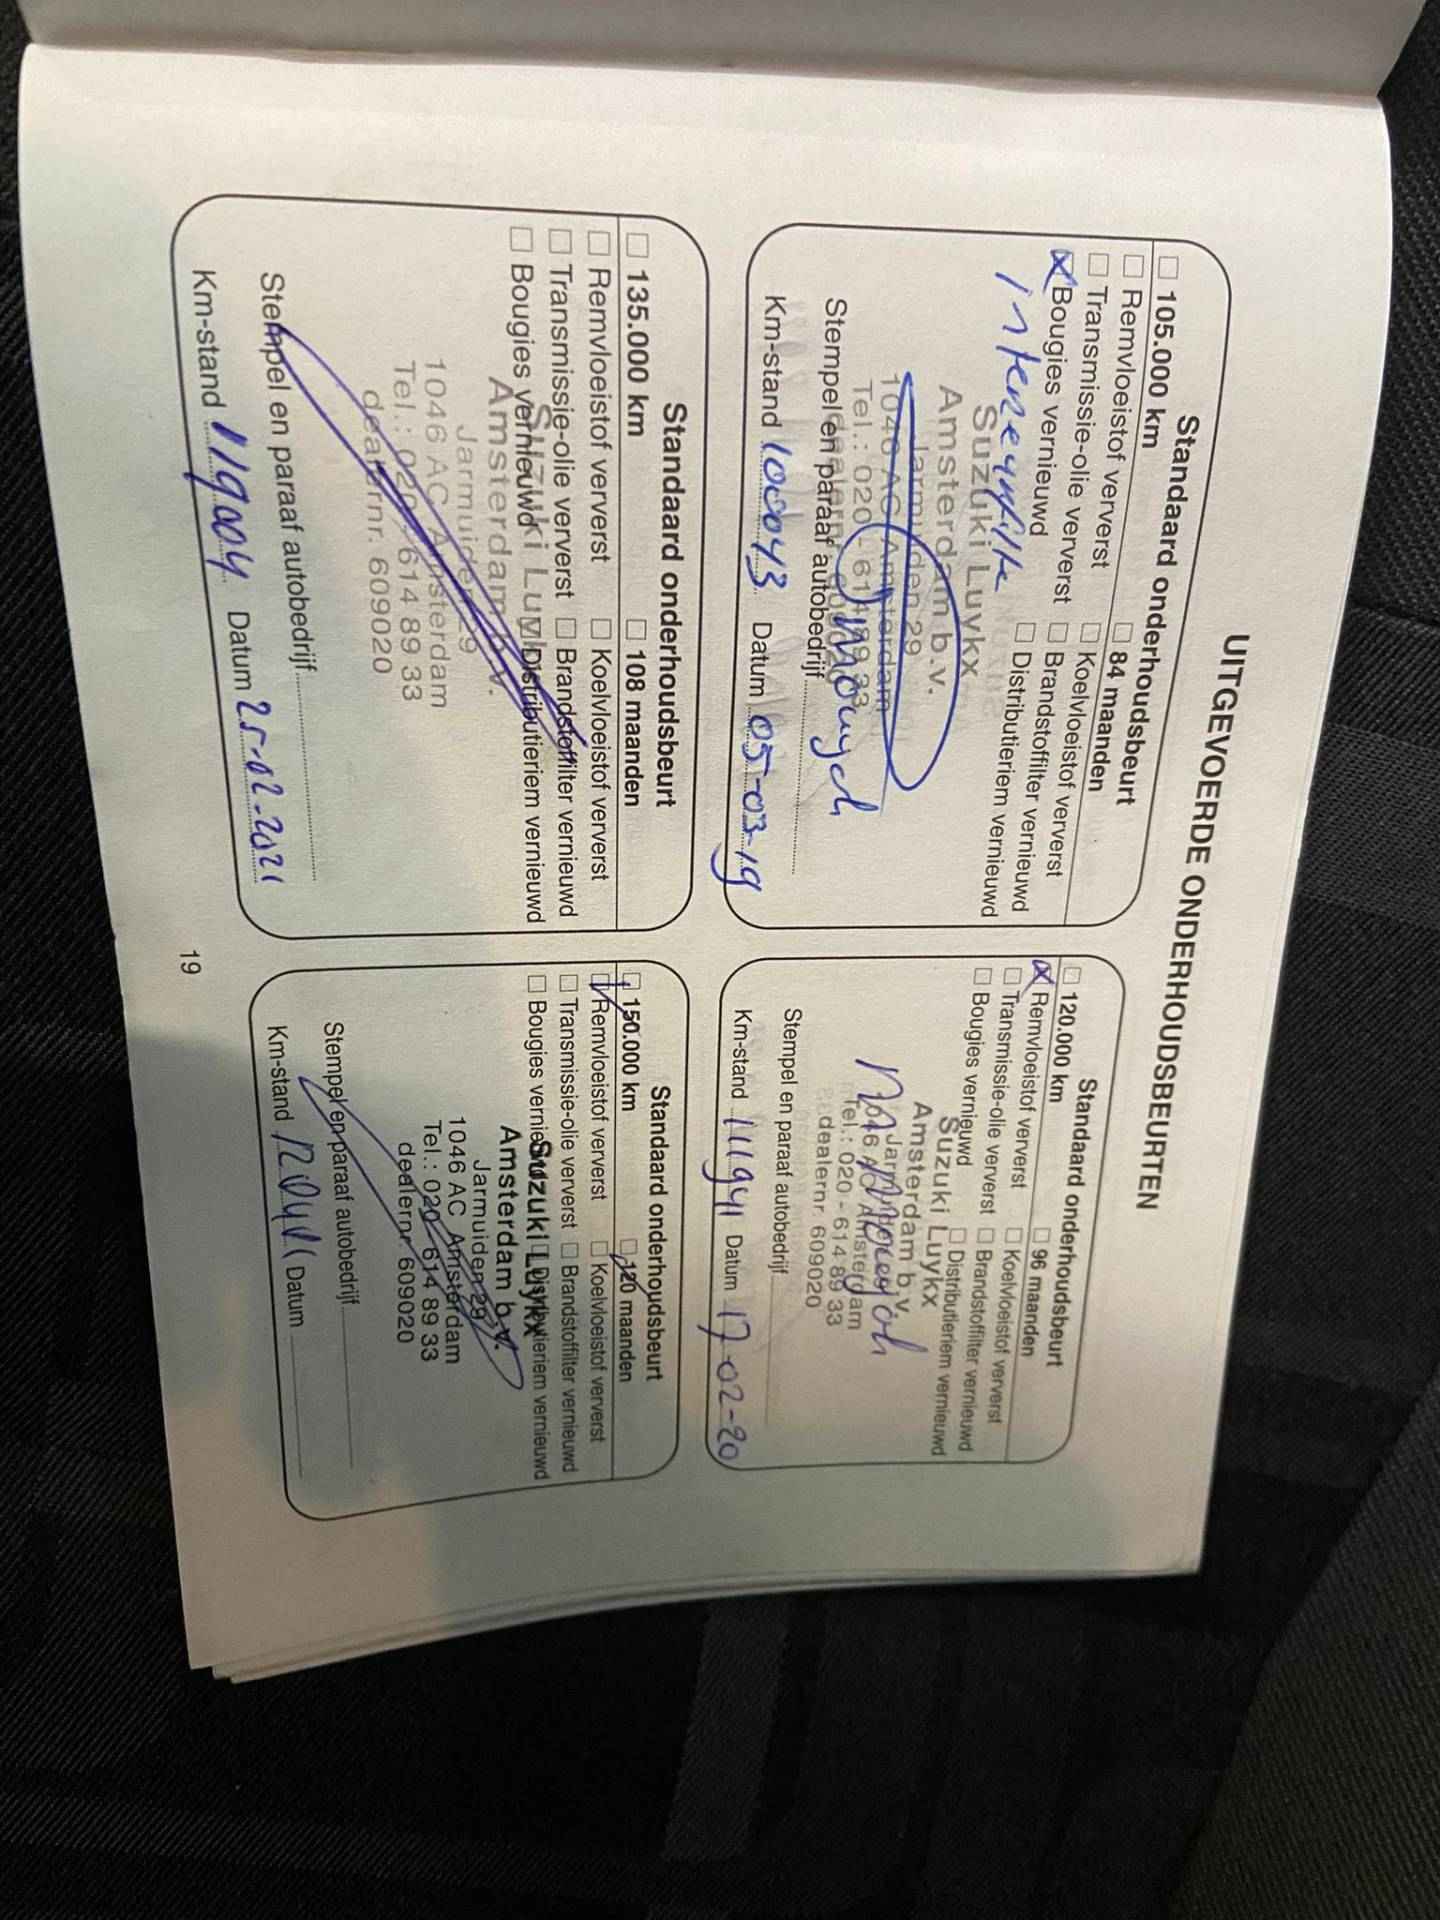 UITGEVOERDE ONDERHOUDSBEURTEN
Standaard onderhoudsbeurt
105.000 km 84 maanden
Remvloeistof ververst Koelvloeistof ververst
Transmissie-olie ververst Brandstoffilter vernieuwd
Bougies vernieuwd Distributieriem vernieuwd
Suzuki Luykx
Amsterdam b.v.
Jarmuiden 29
1046 AC Amsterdam
Tel.: 020 - 614 89 33
dealernr. 609020
Stempel en paraaf autobedrijf
Km-stand 100043 Datum 05-03-19
Standaard onderhoudsbeurt
120.000 km 96 maanden
Remvloeistof ververst Koelvloeistof ververst
Transmissie-olie ververst Brandstoffilter vernieuwd
Bougies vernieuwd Distributieriem vernieuwd
Suzuki Luykx
Amsterdam b.v.
Jarmuiden 29
1046 AC Amsterdam
Tel.: 020 - 614 89 33
dealernr. 609020
Stempel en paraaf autobedrijf
Km-stand 111941 Datum 17-02-20
Standaard onderhoudsbeurt
135.000 km 108 maanden
Remvloeistof ververst Koelvloeistof ververst
Transmissie-olie ververst Brandstoffilter vernieuwd
Bougies vernieuwd Distributieriem vernieuwd
Suzuki Luykx
Amsterdam b.v.
Jarmuiden 29
1046 AC Amsterdam
Tel.: 020 - 614 89 33
dealernr. 609020
Stempel en paraaf autobedrijf
Km-stand 119004 Datum 25-02-2021
Standaard onderhoudsbeurt
150.000 km 120 maanden
Remvloeistof ververst Koelvloeistof ververst
Transmissie-olie ververst Brandstoffilter vernieuwd
Bougies vernieuwd Distributieriem vernieuwd
Suzuki Luykx
Amsterdam b.v.
Jarmuiden 29
1046 AC Amsterdam
Tel.: 020 - 614 89 33
dealernr. 609020
Stempel en paraaf autobedrijf
Km-stand Datum
19